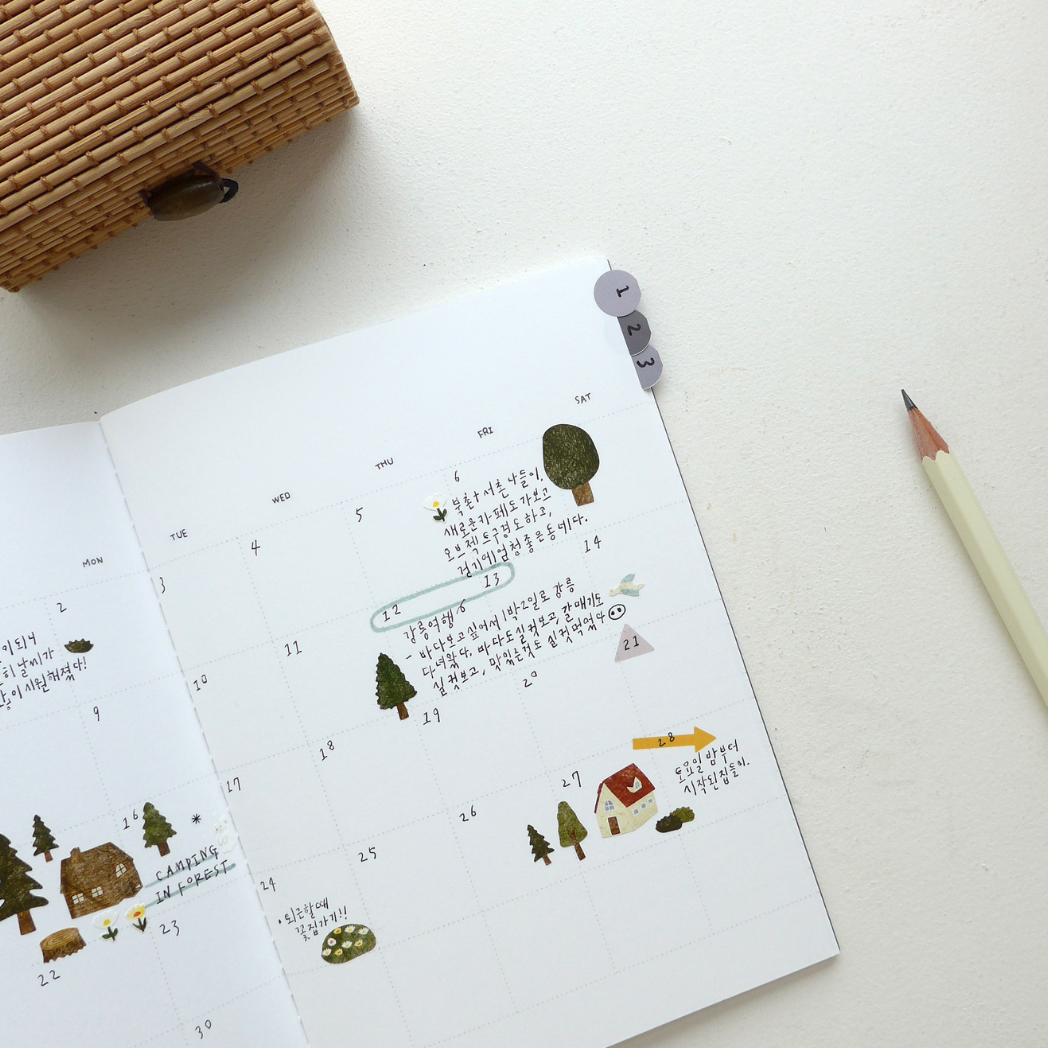 1
2
3
MON
TUE
WED
THU
FRI
SAT
2
날씨가
이 시원해졌다!
3
4
5
6
북촌+서촌 나들이.
새로운 카페도 가보고
오브젝트구경도하고,
걷기에 엄청 좋은동네다.
9
10
11
12
13
강릉여행
- 바다보고싶어서 1박2일로 강릉
다녀왔다. 바다도실컷보고, 갈매기도
실컷보고, 맛있는것도 실컷먹었다
14
16
*
CAMPING
IN FOREST
17
18
19
20
21
22
23
24
• 퇴근할때
꽃집가기!!
25
26
27
28
토요일 밤부터
시작된집들이.
30